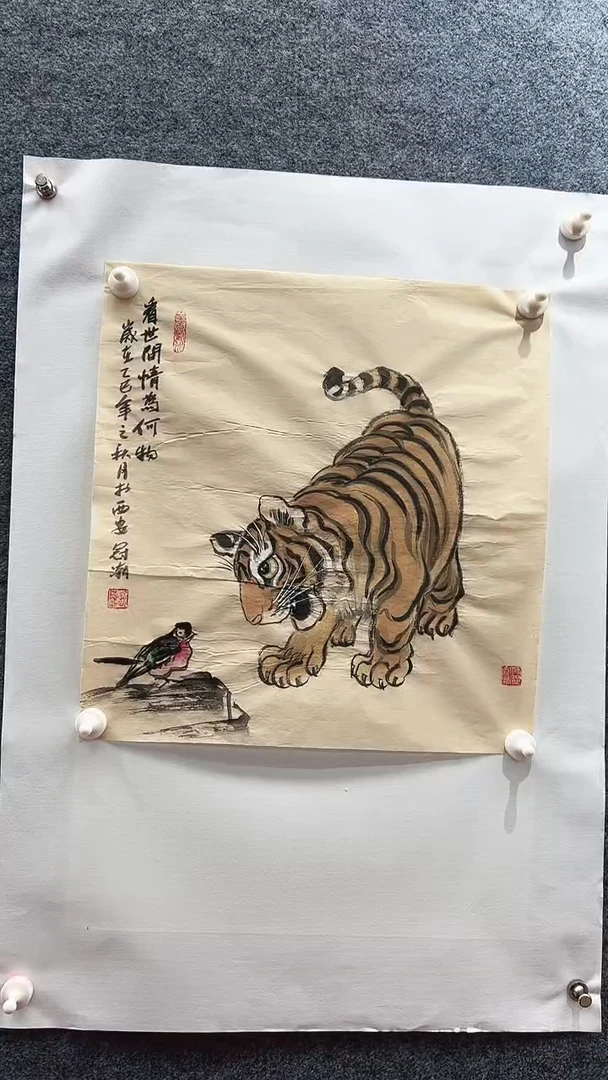 看世間情為何物
歲在乙巳年之秋月於西安冠潮